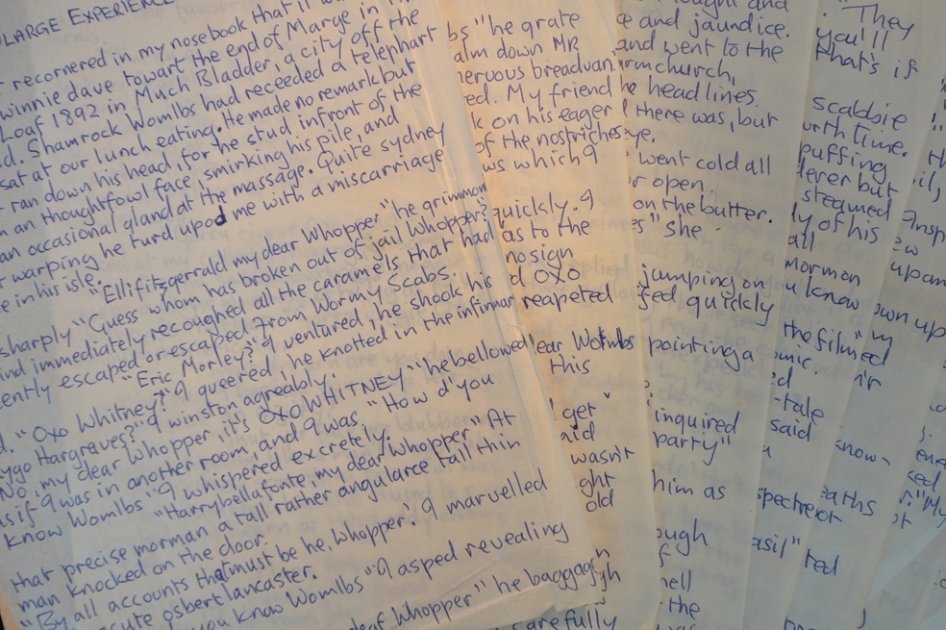 LARGE EXPERIENCE
recornered in my nosebook that it w
winnie dave towart the end of Marge in
Loaf 1892 in Much Bladder, a city off the
d. Shamrock Womlbs had receeded a telephart
sat at our lunch eating. He made no remark but
ran down his head, for the stud infront of the
an thoughtfowl face, smirking his pile, and
an occasional gland at the massage. Quite sydney
warping he turd upod me with a miscarriage
e in his isle.
"Ellifitzgerrald my dear Whopper" he grimmon
sharply "Guess whom has broken out of jail Whopper?"
ind immediately recoughed all the caramels that had
ently escaped or escaped from Wormy Scabs.
"Eric Morley?" I ventured, he shook his
d. "Oxo Whitney?" I queered, he knotted in the infirmar
ygo Hargraves?" I winston agreably.
No, my dear Whopper, it's OXO WHITNEY" he bellowed
as if I was in another room, and I was. "How d'you
know Womlbs" I whispered excretly.
"Harrybellafonte, my dear Whopper" At
that precise morman a tall rather angularce tall thin
man knocked on the door.
"By all accounts that must be he, Whopper". I marvelled
cute osbert lancaster.
you know Womlbs" I asped revealing
deaf Whopper" he baggage
bs" he grate
alm down MR
nervous breadvan
ed. My friend
k on his eager
of the nostriches
ws which I
quickly. I
as to the
no sign
d OXO
reapeted
ear Womlbs
this
get"
aid
wasn't
ght
old
gh
arefully
e and jaundice.
and went to the
rmchurch,
e headlines.
there was, but
ye.
went cold all
r open.
on the butter.
es" she
jumping on
fed quickly
pointing a
inquired
party"
him as
ough
f
hell
the
was
scabbie
urth time.
puffing
lever but
steamed
ly of his
all
Mormon
u know
the filmed
omic.
d
-tale
said
a
spectreot
asil" red
"They
you'll
that's if
Insp
ew
upon
own up
m
'r
know-
eaths
ot